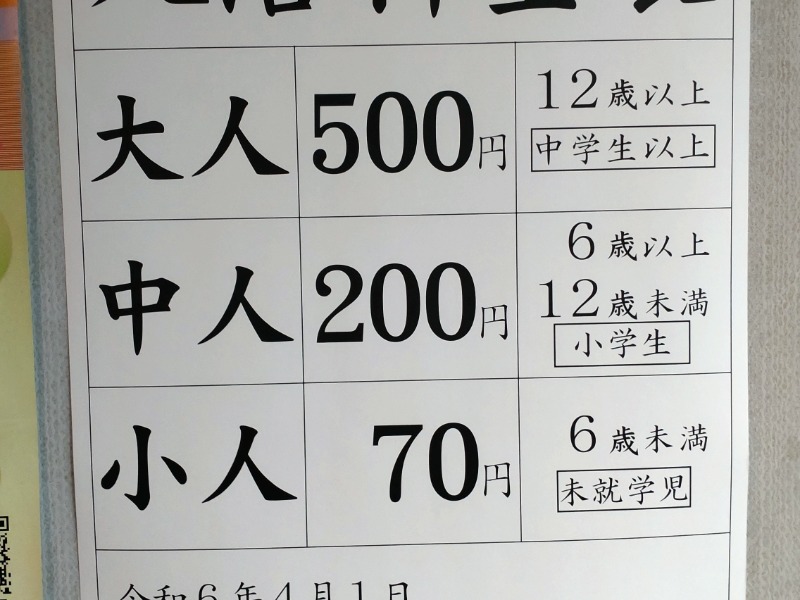 大人 500円 12歳以上
中学生以上
中人 200円 6歳以上
12歳未満
小学生
小人 70円 6歳未満
未就学児
令和6年4月1日